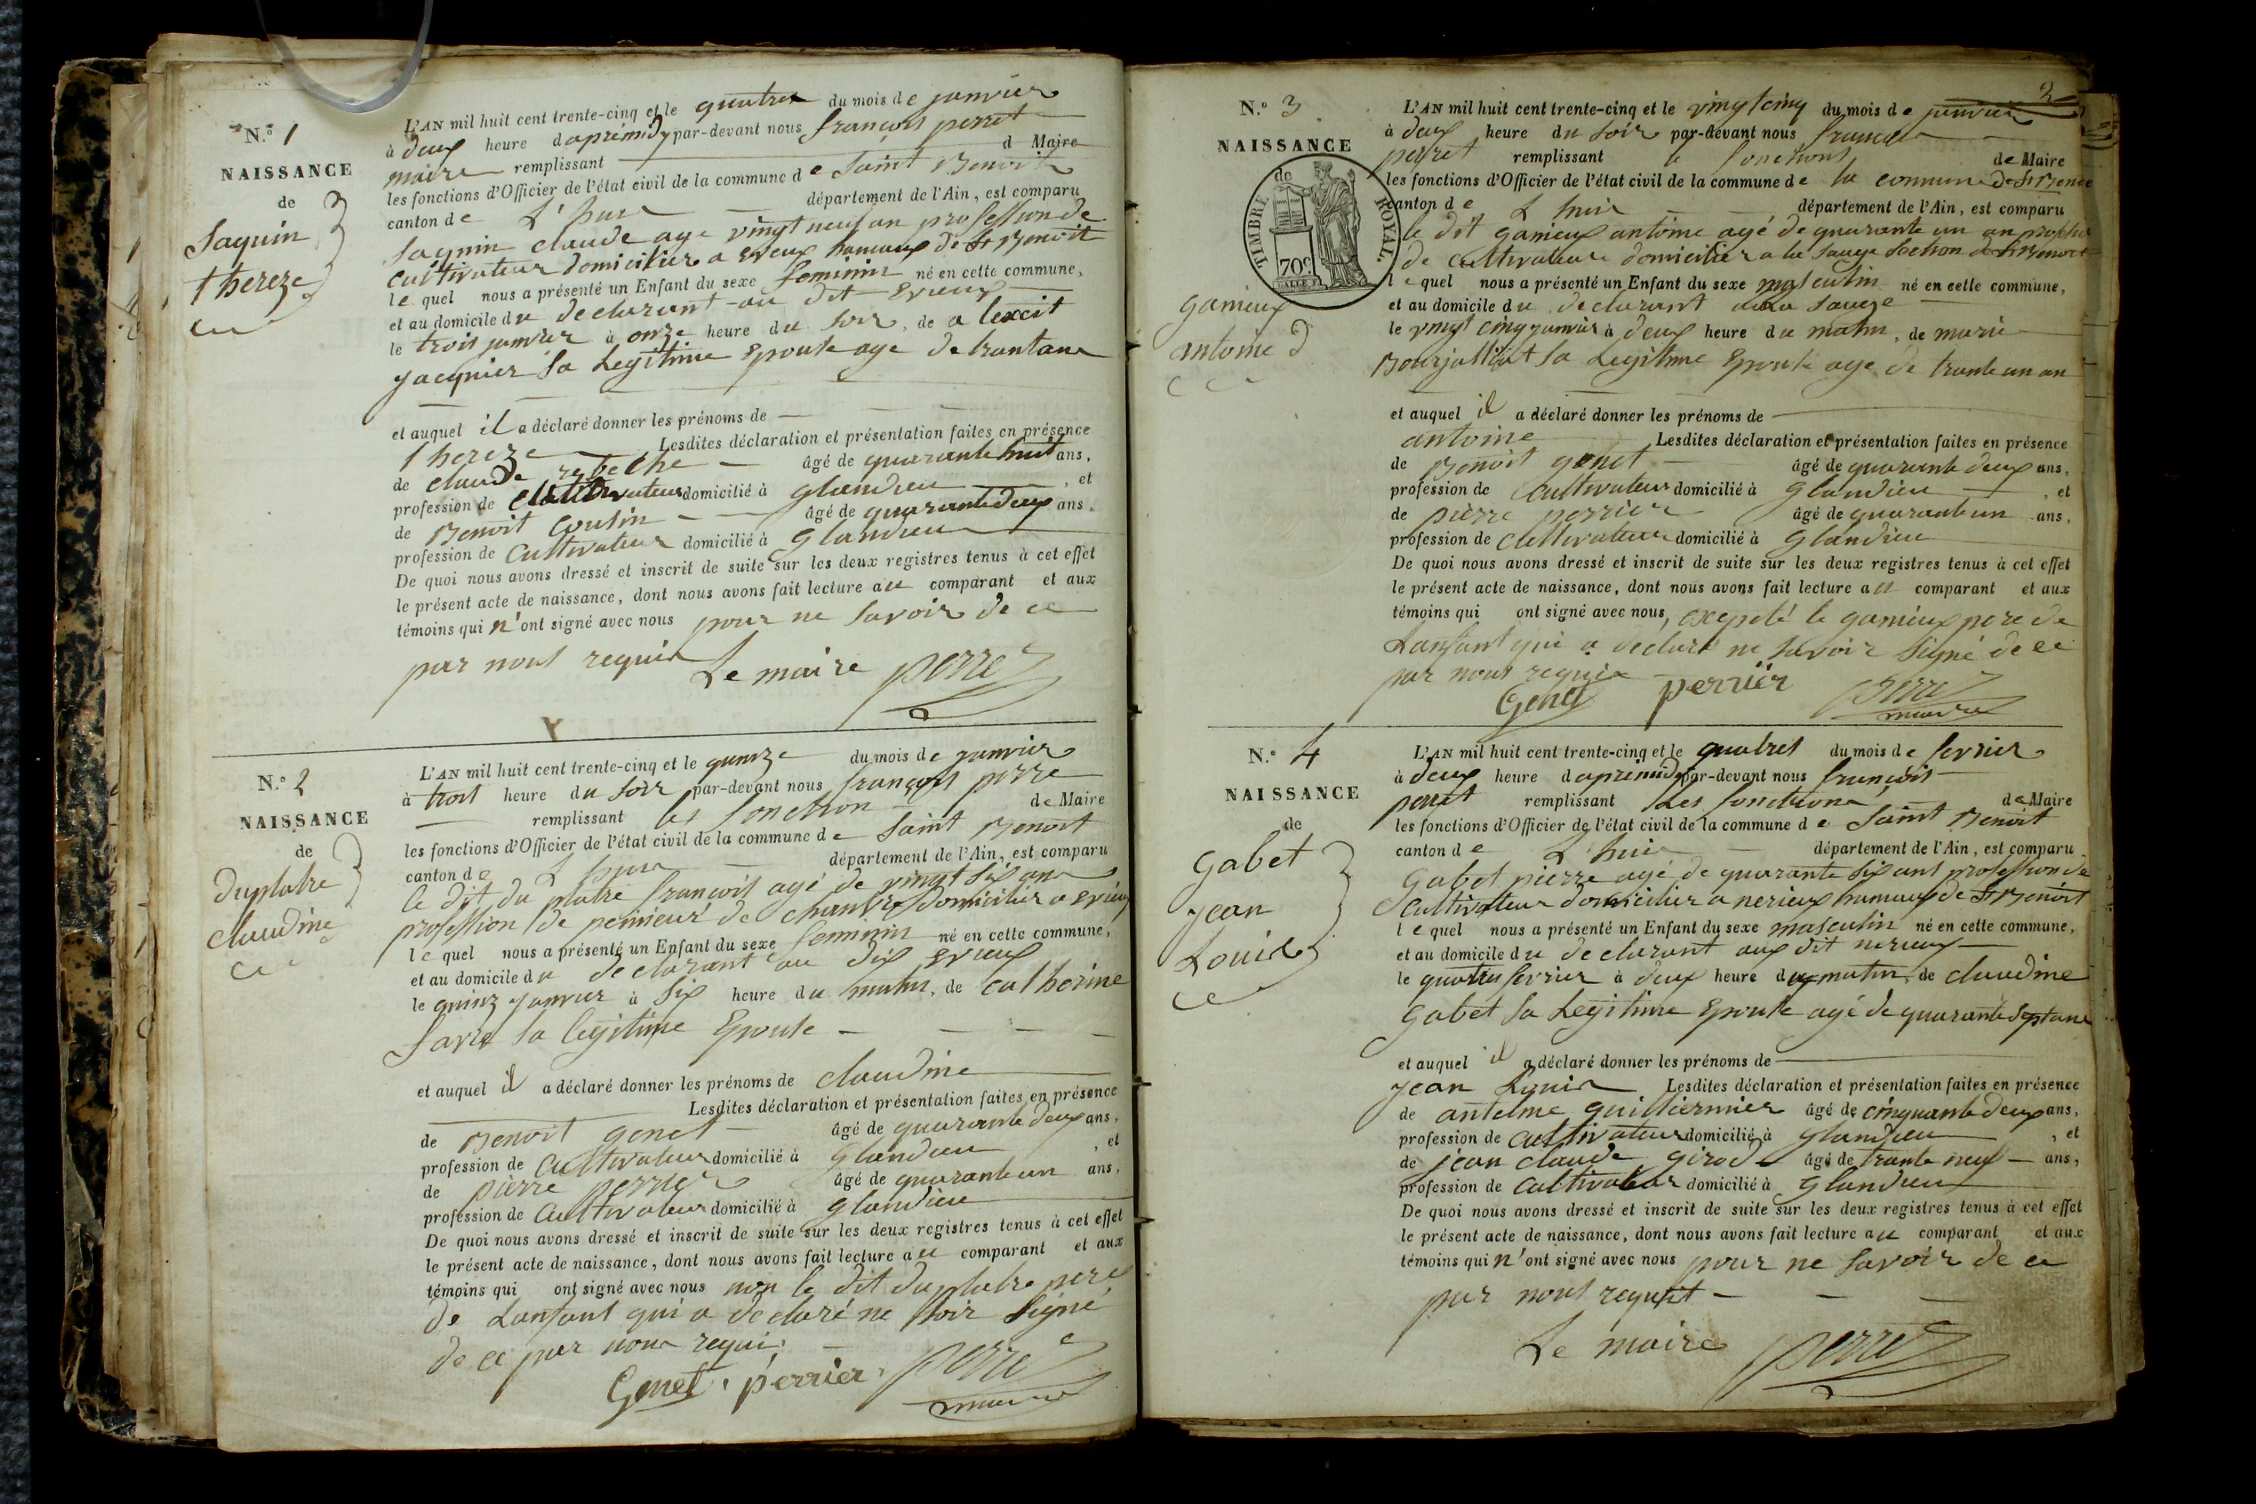 N.o 1
NAISSANCE
de
Saquin
thereze
L'AN mil huit cent trente-cinq et le quatre du mois de janvier
à deux heure d apremidy par-devant nous françois perret
maire remplissant d Maire
les fonctions d'Officier de l'état civil de la commune de Saint Benoit
canton de L'huis département de l'Ain, est comparu
Saquin claude age vingt neuf an profession de
cultivateur domicilier a evieux hameaux de St Benoit
le quel nous a présenté un Enfant du sexe feminin né en cette commune,
et au domicile du declarant au dit evieux
le trois janvier à onze heure du soir, de
jacquier sa Legitime Epouse age de trantane
et auquel il a déclaré donner les prénoms de
thereze Lesdites déclaration et présentation faites en présence
de claude âgé de quarante huit ans,
profession de cultivateur domicilié à glandieu, et
de Benoit Cousin âgé de quarante deux ans,
profession de Cultivateur domicilié à glandieu
De quoi nous avons dressé et inscrit de suite sur les deux registres tenus à cet effet
le présent acte de naissance, dont nous avons fait lecture au comparant et aux
témoins qui n'ont signé avec nous pour ne savoir de ce
par nous requis
Le maire perret
N.o 2
NAISSANCE
de
Duplatre
claudine
L'AN mil huit cent trente-cinq et le quinze du mois de janvier
à trois heure du soir par-devant nous françois perre
remplissant les fonction de Maire
les fonctions d'Officier de l'état civil de la commune de Saint Benoit
canton de L'huis département de l'Ain, est comparu
le dit du platre francois agé de vingt six an
profession de peinieur de chanvre domicilier a evieux
le quel nous a présenté un Enfant du sexe feminin né en cette commune,
et au domicile du declarant au dix evieux
le quinz janvier à six heure du matin, de catherine
Savre sa legitime Epouse
et auquel il a déclaré donner les prénoms de claudine
Lesdites déclaration et présentation faites en présence
de Benoit genet âgé de quarante deux ans,
profession de Cultivateur domicilié à glandieu, et
de pierre perrier âgé de quarante un ans,
profession de Cultivateur domicilié à glandieu
De quoi nous avons dressé et inscrit de suite sur les deux registres tenus à cet effet
le présent acte de naissance, dont nous avons fait lecture au comparant et aux
témoins qui ont signé avec nous non le dit duplatre pere
de Lanfant qui a declaré ne signé
de ce par nous requi
Genet perrier perret
maire
2
N.o 3
NAISSANCE
de
TIMBRE ROYAL.
70c
ganieux
antoine
L'AN mil huit cent trente-cinq et le vingt cinq du mois de janvier
à deux heure du soir par-devant nous francois
perret remplissant le fonctions de Maire
les fonctions d'Officier de l'état civil de la commune de la commune de St Benoi
canton de L huis département de l'Ain, est comparu
le dit ganieux antoine agé de quarante un an
de cultivateur domicilier a la Sauge Section de St Benoit
le quel nous a présenté un Enfant du sexe masculin né en cette commune,
et au domicile du declarant a la sauge
le vingt cinq janvier à deux heure du matin, de marie
sa Legitime Epouse age de trante un an
et auquel il a déclaré donner les prénoms de
antoine Lesdites déclaration et présentation faites en présence
de Benoit genet âgé de quarante deux ans,
profession de Cultivateur domicilié à glandieu, et
de pierre perrier âgé de quarante un ans,
profession de Cultivateur domicilié à glandieu
De quoi nous avons dressé et inscrit de suite sur les deux registres tenus à cet effet
le présent acte de naissance, dont nous avons fait lecture au comparant et aux
témoins qui ont signé avec nous, exepté le ganieux pere de
Lanfant qui a declaré ne savoir signé de ce
par nous requis
Genet perrier perret
maire
N.o 4
NAISSANCE
de
gabet
jean
Louis
L'AN mil huit cent trente-cinq et le quatres du mois de fevrier
à deux heure d apremidy par-devant nous francois
perret remplissant Les fonctions de Maire
les fonctions d'Officier de l'état civil de la commune de Saint Benoit
canton de L'huis département de l'Ain, est comparu
gabet pierre agé de quarante six ans profession de
cultivateur domicilier a nerieux hamaux de St Benoit
le quel nous a présenté un Enfant du sexe masculin né en cette commune,
et au domicile du declarant aux dit nerieux
le quatres fevrier à deux heure du matin, de claudine
gabet sa Legitime Epouse agé de quarante sept ane
et auquel il a déclaré donner les prénoms de
jean Louis Lesdites déclaration et présentation faites en présence
de antelme guilliermier âgé de cinquante deux ans,
profession de cultivateur domicilié à glandieu, et
de jean claude girod âgé de trante neuf ans,
profession de cultivateur domicilié à glandieu
De quoi nous avons dressé et inscrit de suite sur les deux registres tenus à cet effet
le présent acte de naissance, dont nous avons fait lecture au comparant et aux
témoins qui n'ont signé avec nous pour ne savoir de ce
par nous requit
Le maire perret